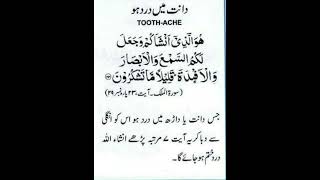 دانت میں درد ہو
TOOTH-ACHE
هُوَ الَّذِيْٓ اَنْشَاَكُمْ وَجَعَلَ
لَكُمُ السَّمْعَ وَالْاَبْصَارَ
وَالْاَفْـِٕدَةَ قَلِيْلًا مَّا تَشْكُرُوْنَ
(سورۃ الملک۔ آیت، ۲۳ پارہ نمبر ۲۹)
جس دانت یا داڑھ میں درد ہو اس کو انگلی
سے دبا کر یہ آیت ۷ مرتبہ پڑھے انشاء اللہ
درد ختم ہو جائے گا۔